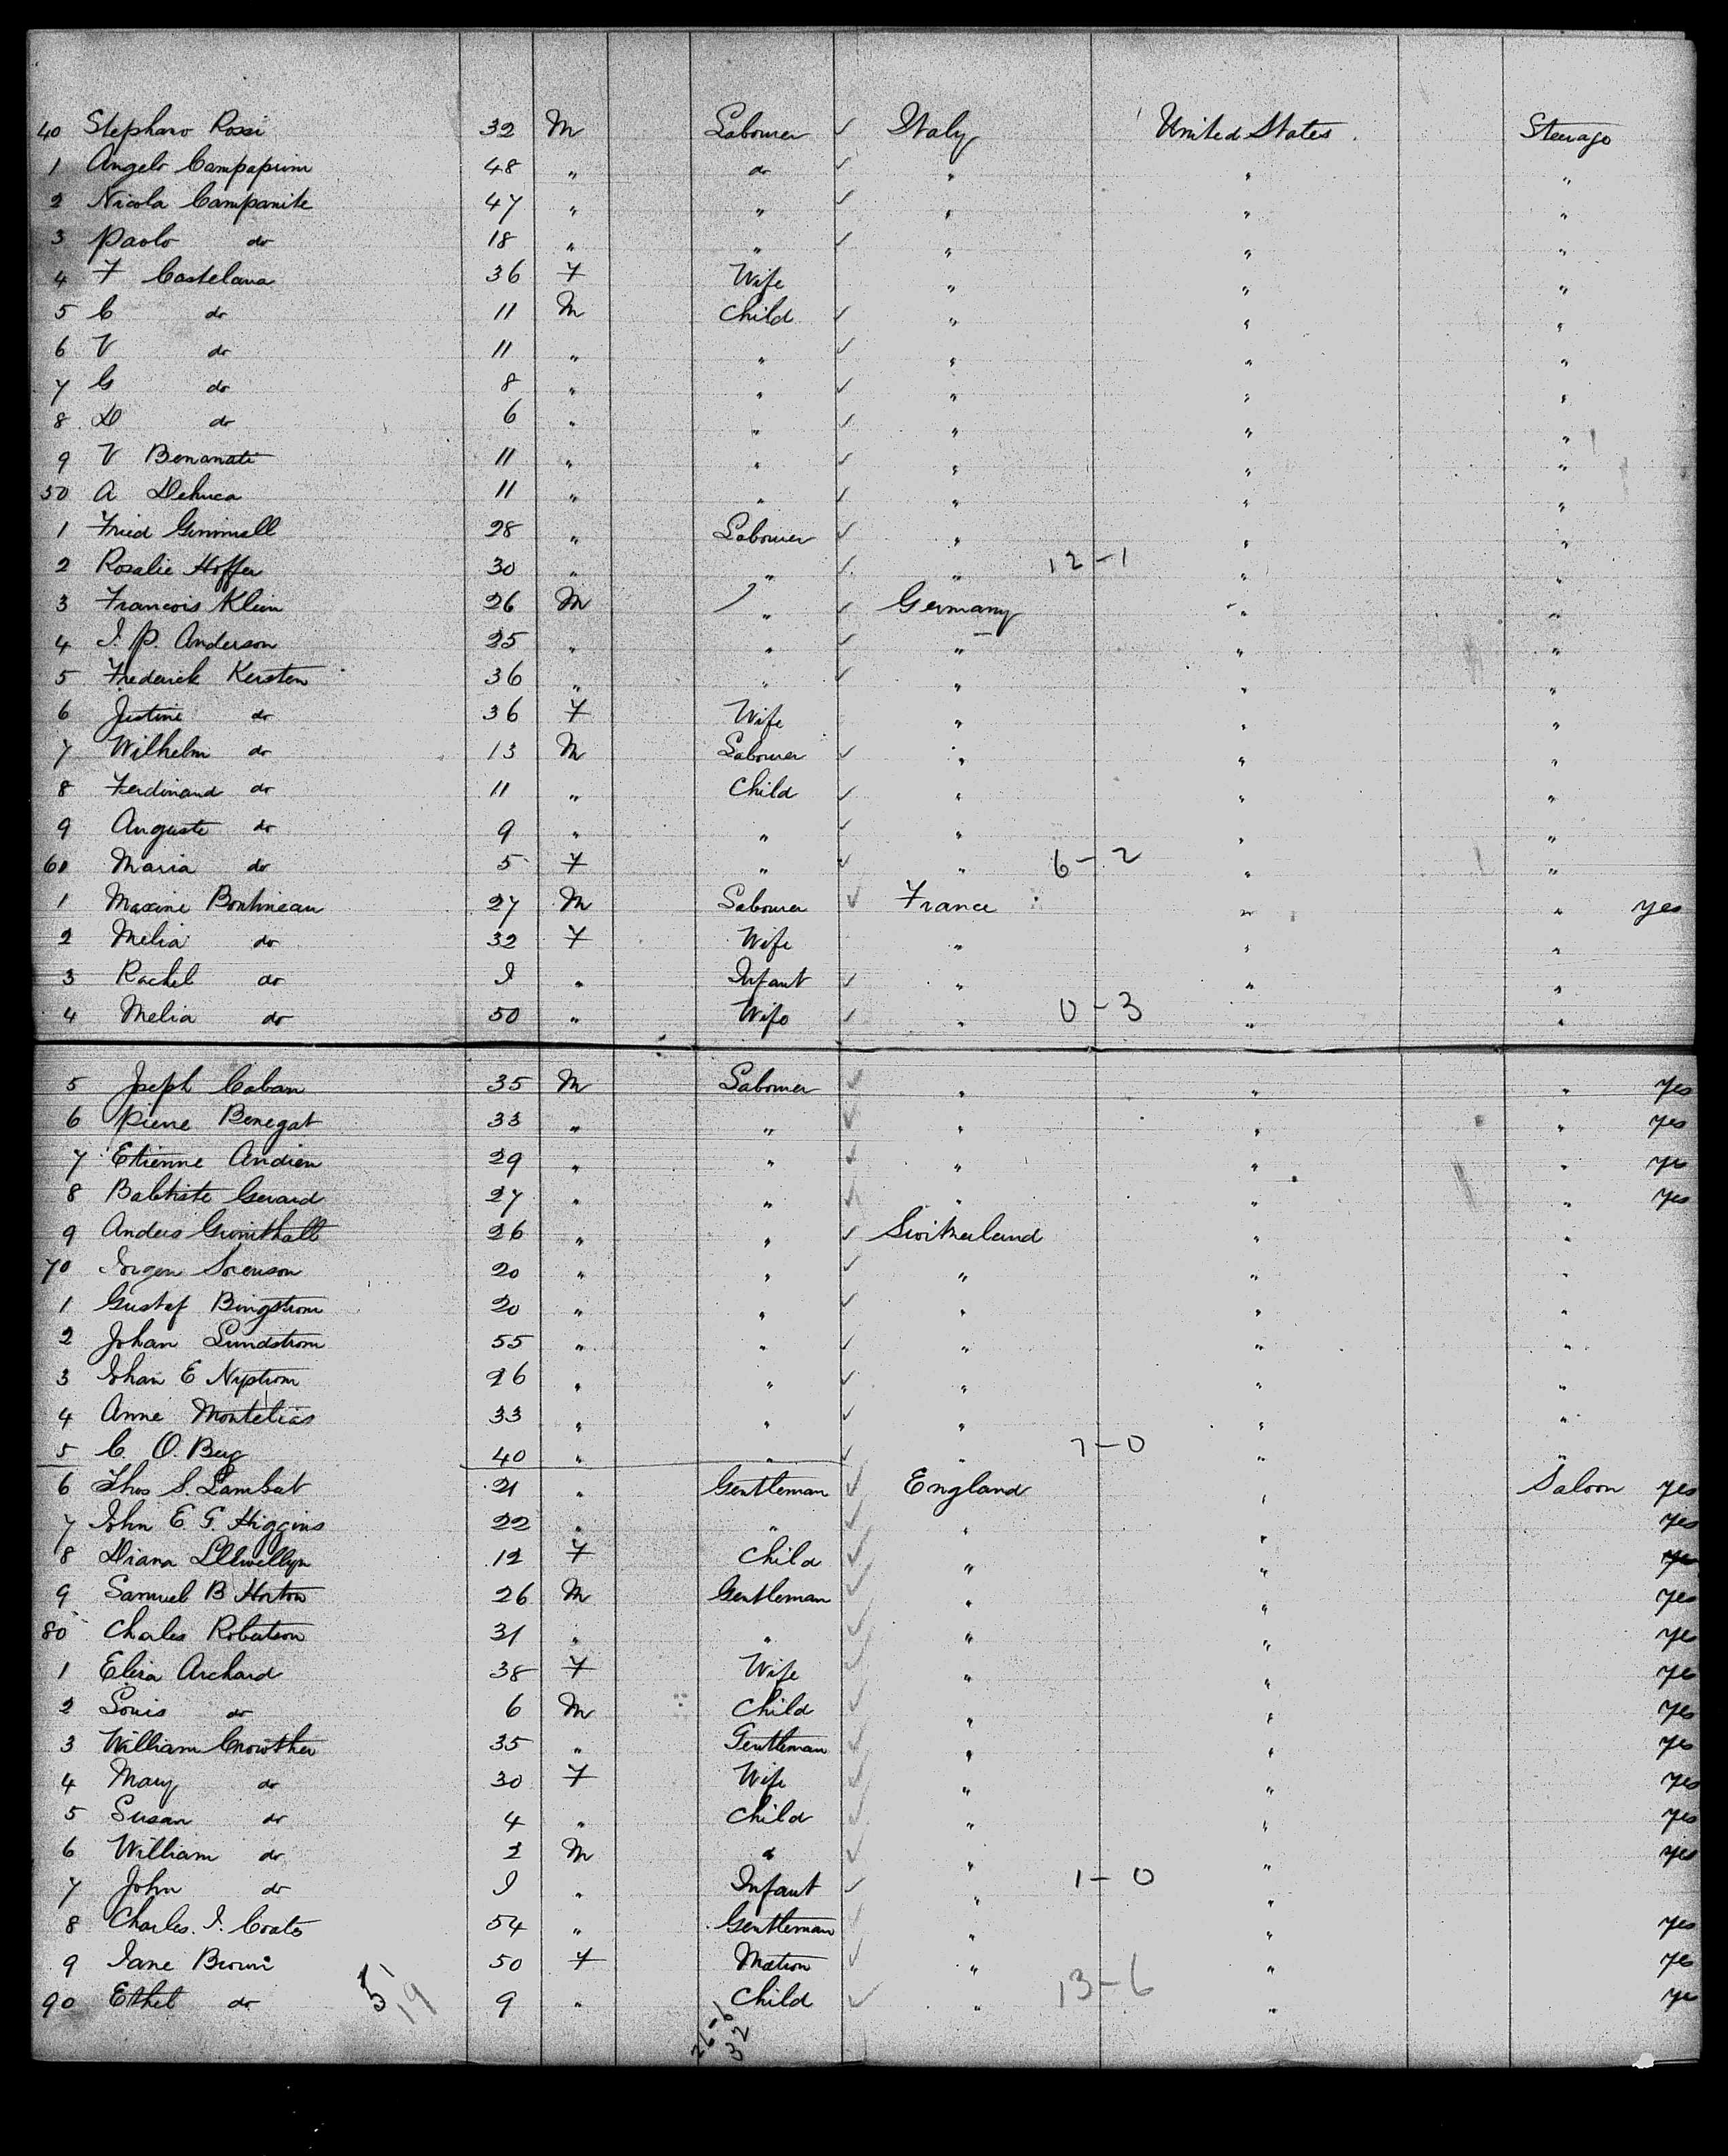 40 Stephano Rossi 32 M Labourer ✓ Italy United States. Steerage
1 Angelo Campaprim 48 " do ✓ " " "
2 Nicola Campanile 47 " " ✓ " " "
3 Paolo do 18 " " ✓ " " "
4 F Castelana 36 F Wife " " "
5 C do 11 M Child ✓ " " "
6 V do 11 " " ✓ " " "
7 G do 8 " " ✓ " " "
8 D do 6 " " ✓ " " "
9 V Benanati 11 " " ✓ " " "
50 A Deluca 11 " " ✓ " " "
1 Fried 28 " Labourer ✓ " " "
2 Rosalie Hoffer 30 " " ✓ " 12-1 " "
3 Francois Klein 26 M " ✓ Germany " "
4 J. P. Anderson 25 " " ✓ " " "
5 Frederick Kersten 36 " " ✓ " " "
6 Justine do 36 F Wife " " "
7 Wilhelm do 13 M Labourer ✓ " " "
8 Ferdinand do 11 " Child ✓ " " "
9 Auguste do 9 " " ✓ " " "
60 Maria do 5 F " ✓ " 6-2 " "
1 Maxine Bontineau 27 M Labourer ✓ France " " yes
2 Melia do 32 F Wife " " "
3 Rachel do I " Infant ✓ " " "
4 Melia do 50 " Wife ✓ " 0-3 " "
5 Joseph Caban 35 M Labourer ✓ " " " yes
6 Pierre Benegat 33 " " ✓ " " " yes
7 Etienne Andien 29 " " ✓ " " " yes
8 Babtiste Gerard 27 " " ✓ " " " yes
9 Anders 26 " " ✓ Switzerland " "
70 Jorgen Sorenson 20 " " ✓ " " "
1 Gustaf Bingstrom 20 " " ✓ " " "
2 Johan Lundstrom 55 " " ✓ " " "
3 Johan E Nystrom 26 " " ✓ " " "
4 Anne Montelias 33 " " ✓ " " "
5 C. O. Berg 40 " " ✓ " 7-0 " "
6 Thos S. Lambert 21 " Gentleman ✓ England " Saloon yes
7 John E. G. Higgins 22 " " ✓ " " yes
8 Diana Llewellyn 12 F Child ✓ " " yes
9 Samuel B Horton 26 M Gentleman ✓ " " yes
80 Charles Robertson 31 " " ✓ " " yes
1 Eliza Archard 38 F Wife ✓ " " yes
2 Louis do 6 M Child ✓ " " yes
3 William Crowther 35 " Gentleman ✓ " " yes
4 Mary do 30 F Wife ✓ " " yes
5 Susan do 4 " Child ✓ " " yes
6 William do 2 M " ✓ " " yes
7 John do I " Infant ✓ " 1-0 "
8 Charles. J. Coates 54 " Gentleman ✓ " " yes
9 Jane Brown 50 F Matron ✓ " " yes
90 Ethel do 9 " Child ✓ " 13-6 " ye
5 19
26-6
32